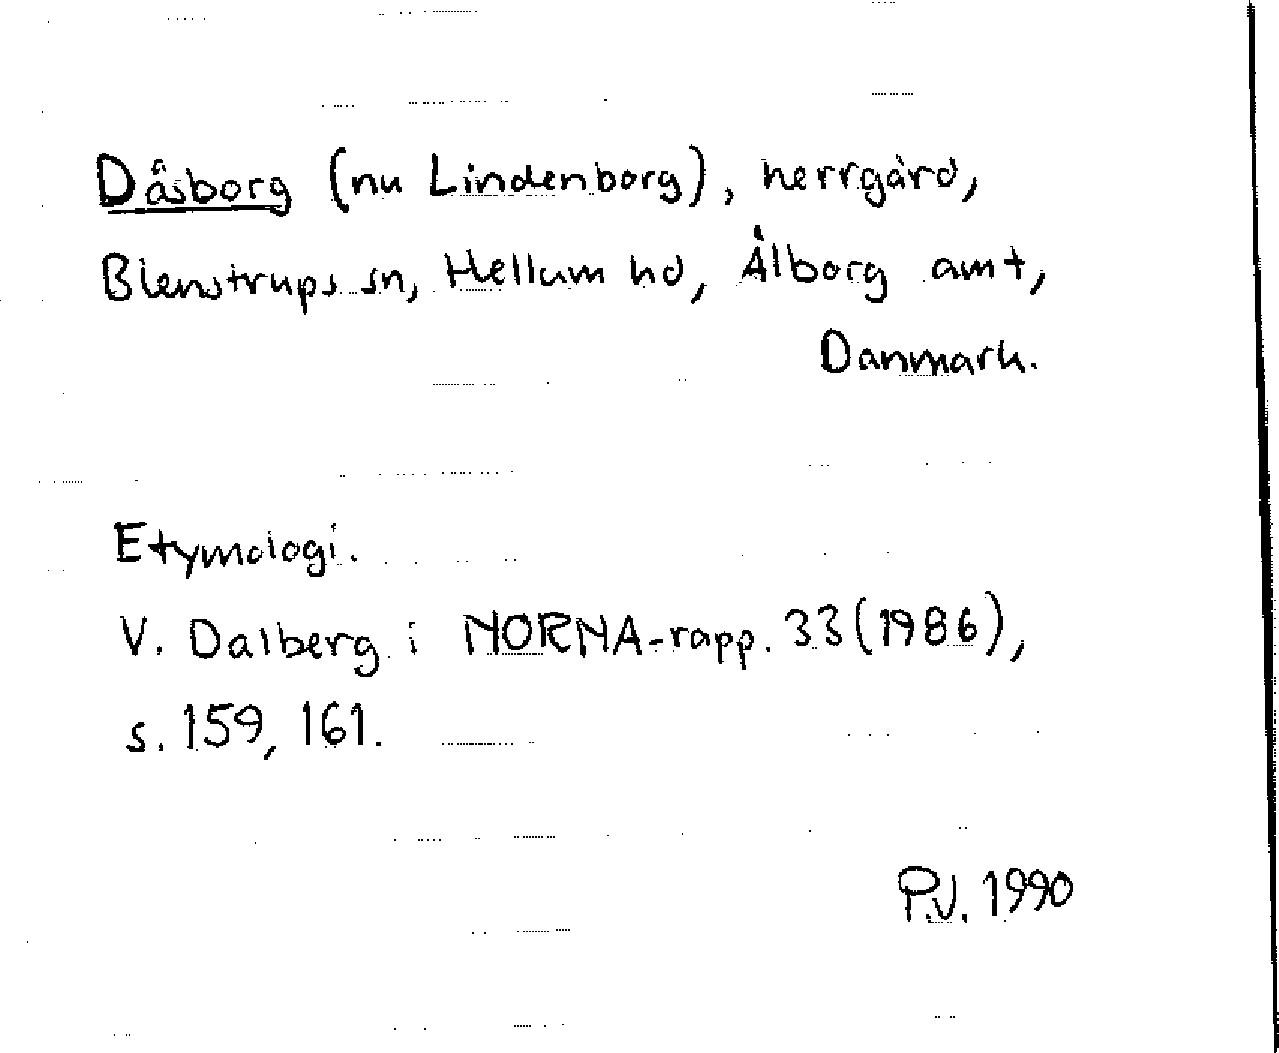 Dåsborg (nu Lindenborg), herrgård,
Blenstrups sn, Hellum hd, Ålborg amt,
Danmark.
Etymologi.
V. Dalberg i NORNA-rapp. 33 (1986),
s. 159, 161.
P.V. 1990